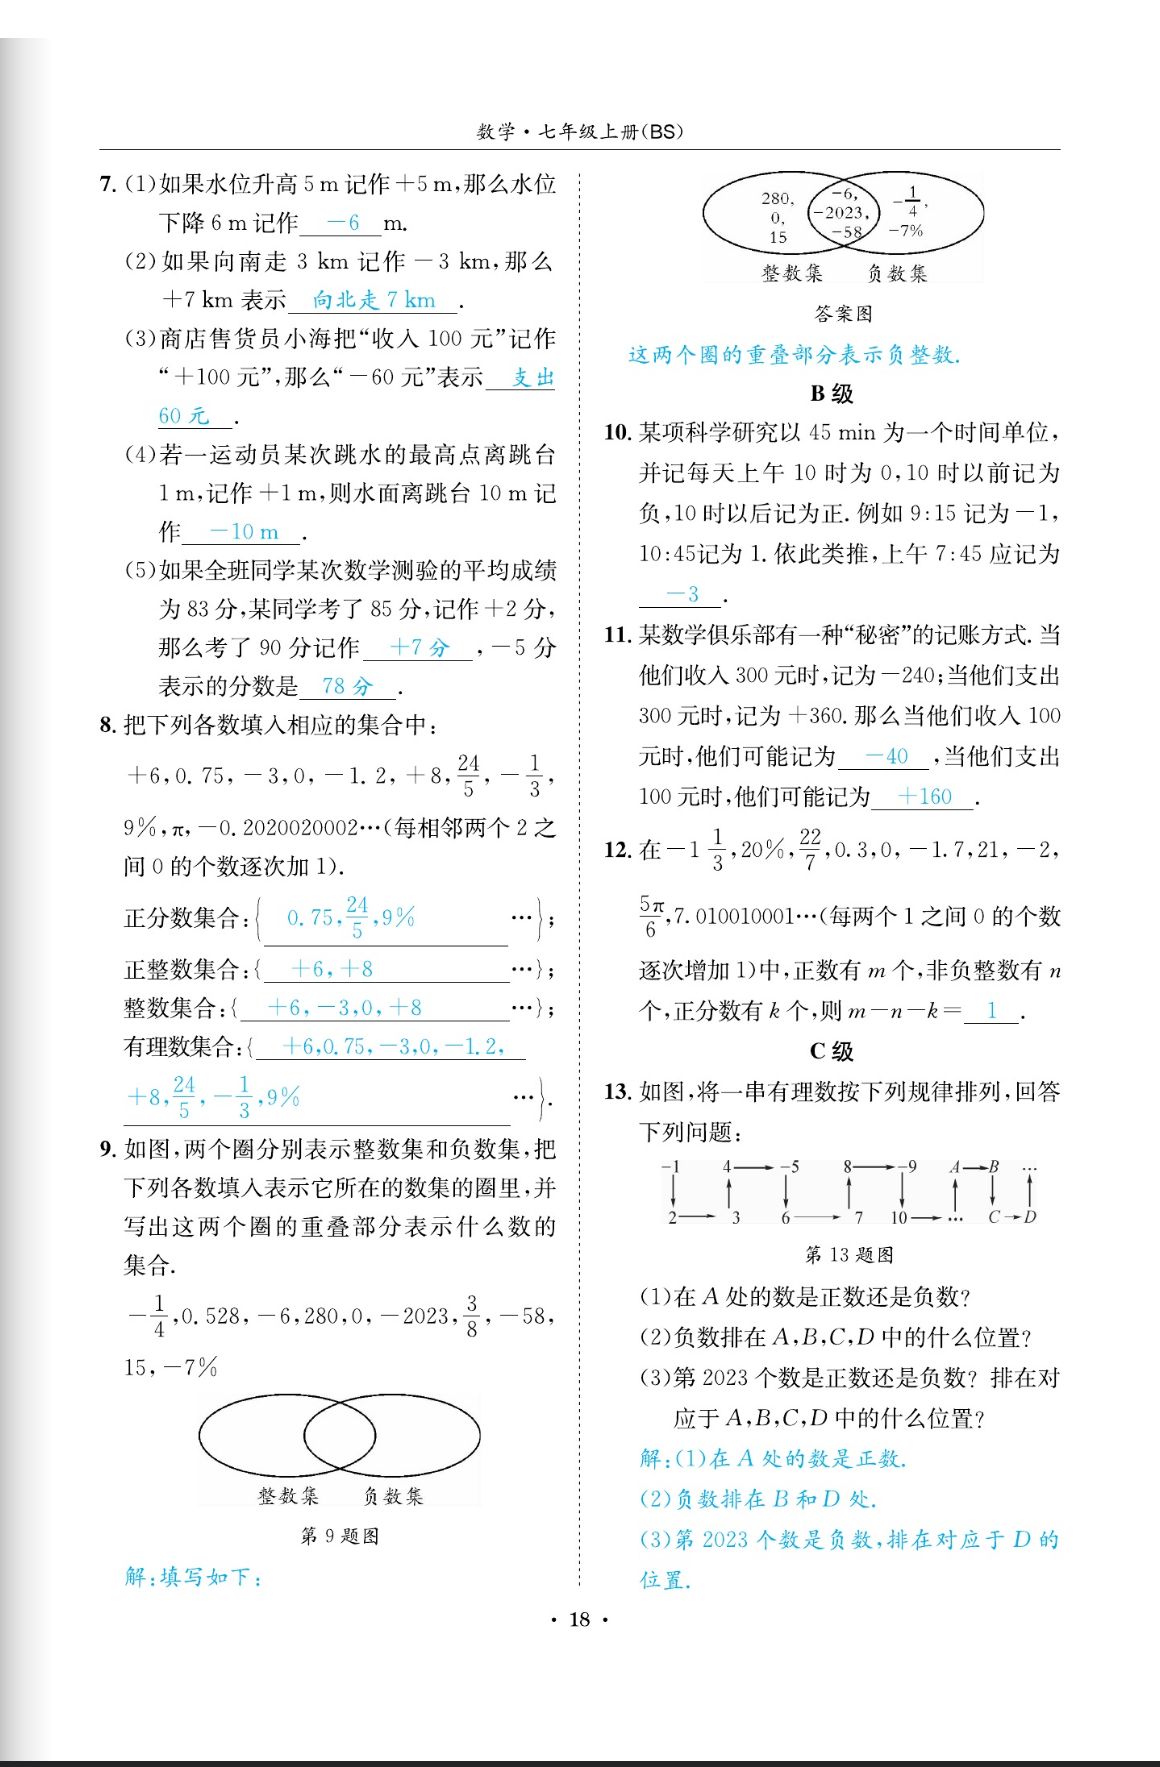 数学·七年级上册(BS)
7. (1)如果水位升高 5 m 记作+5 m,那么水位
下降 6 m 记作 -6 m.
(2)如果向南走 3 km 记作-3 km,那么
+7 km 表示 向北走 7 km .
(3)商店售货员小海把“收入 100 元”记作
“+100 元”,那么“-60 元”表示 支出
60 元 .
(4)若一运动员某次跳水的最高点离跳台
1 m,记作+1 m,则水面离跳台 10 m 记
作 -10 m .
(5)如果全班同学某次数学测验的平均成绩
为 83 分,某同学考了 85 分,记作+2 分,
那么考了 90 分记作 +7 分 ,-5 分
表示的分数是 78 分 .
8. 把下列各数填入相应的集合中:
+6,0.75,-3,0,-1.2,+8,24/5,-1/3,
9%,π,-0.2020020002…(每相邻两个 2 之
间 0 的个数逐次加 1).
正分数集合:{ 0.75,24/5,9% …};
正整数集合:{ +6,+8 …};
整数集合:{ +6,-3,0,+8 …};
有理数集合:{ +6,0.75,-3,0,-1.2,
+8,24/5,-1/3,9% …}.
9. 如图,两个圈分别表示整数集和负数集,把
下列各数填入表示它所在的数集的圈里,并
写出这两个圈的重叠部分表示什么数的
集合.
-1/4,0.528,-6,280,0,-2023,3/8,-58,
15,-7%
整数集 负数集
第 9 题图
解:填写如下:
280, -6, -1/4,
0, -2023,
15 -58 -7%
整数集 负数集
答案图
这两个圈的重叠部分表示负整数.
B 级
10. 某项科学研究以 45 min 为一个时间单位,
并记每天上午 10 时为 0,10 时以前记为
负,10 时以后记为正. 例如 9:15 记为-1,
10:45记为 1. 依此类推,上午 7:45 应记为
-3 .
11. 某数学俱乐部有一种“秘密”的记账方式. 当
他们收入 300 元时,记为-240;当他们支出
300 元时,记为+360. 那么当他们收入 100
元时,他们可能记为 -40 ,当他们支出
100 元时,他们可能记为 +160 .
12. 在-1 1/3,20%,22/7,0.3,0,-1.7,21,-2,
5π/6,7.010010001…(每两个 1 之间 0 的个数
逐次增加 1)中,正数有 m 个,非负整数有 n
个,正分数有 k 个,则 m-n-k= 1 .
C 级
13. 如图,将一串有理数按下列规律排列,回答
下列问题:
-1 4→-5 8→-9 A→B …
↓ ↑ ↓ ↑ ↓ ↑ ↓ ↑
2→ 3 6→ 7 10→… C→D
第 13 题图
(1)在 A 处的数是正数还是负数?
(2)负数排在 A,B,C,D 中的什么位置?
(3)第 2023 个数是正数还是负数? 排在对
应于 A,B,C,D 中的什么位置?
解:(1)在 A 处的数是正数.
(2)负数排在 B 和 D 处.
(3)第 2023 个数是负数,排在对应于 D 的
位置.
· 18 ·